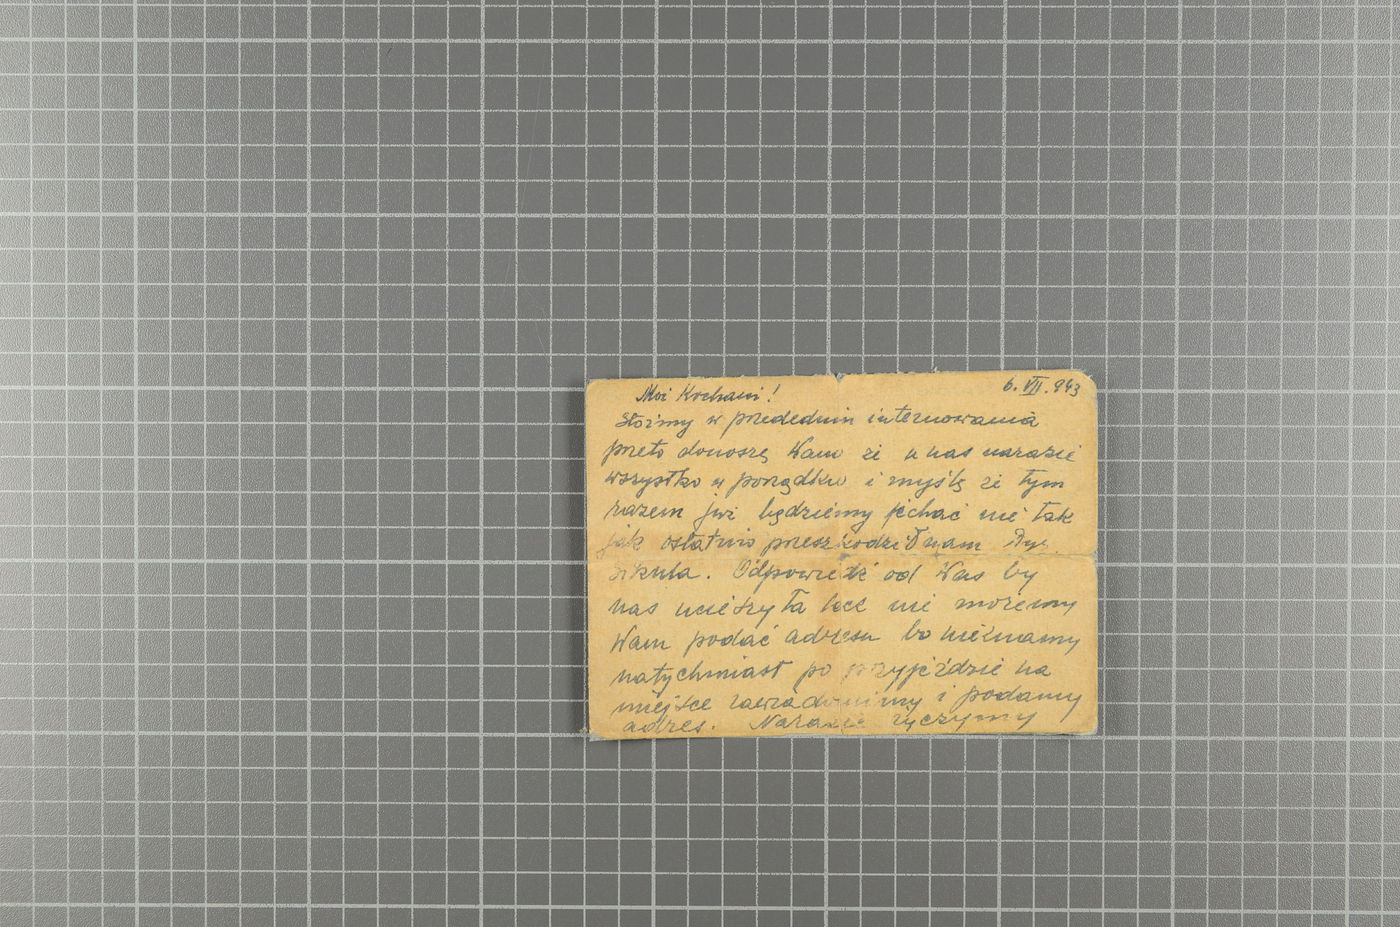 Moi Kochani! 6. VII. 943
Stoimy w przededniu internowania
przeto donoszę Wam że u nas narazie
wszystko w porządku i myślę że tym
razem już będziemy jechać nie tak
jak ostatnio przeszkodził nam Dyr.
Sikula. Odpowiedź od Was by
nas ucieszyła lecz nie możemy
Wam podać adresu bo nieznamy
natychmiast po przyjeździe na
miejsce zawiadomimy i podamy
adres. Narazie życzymy